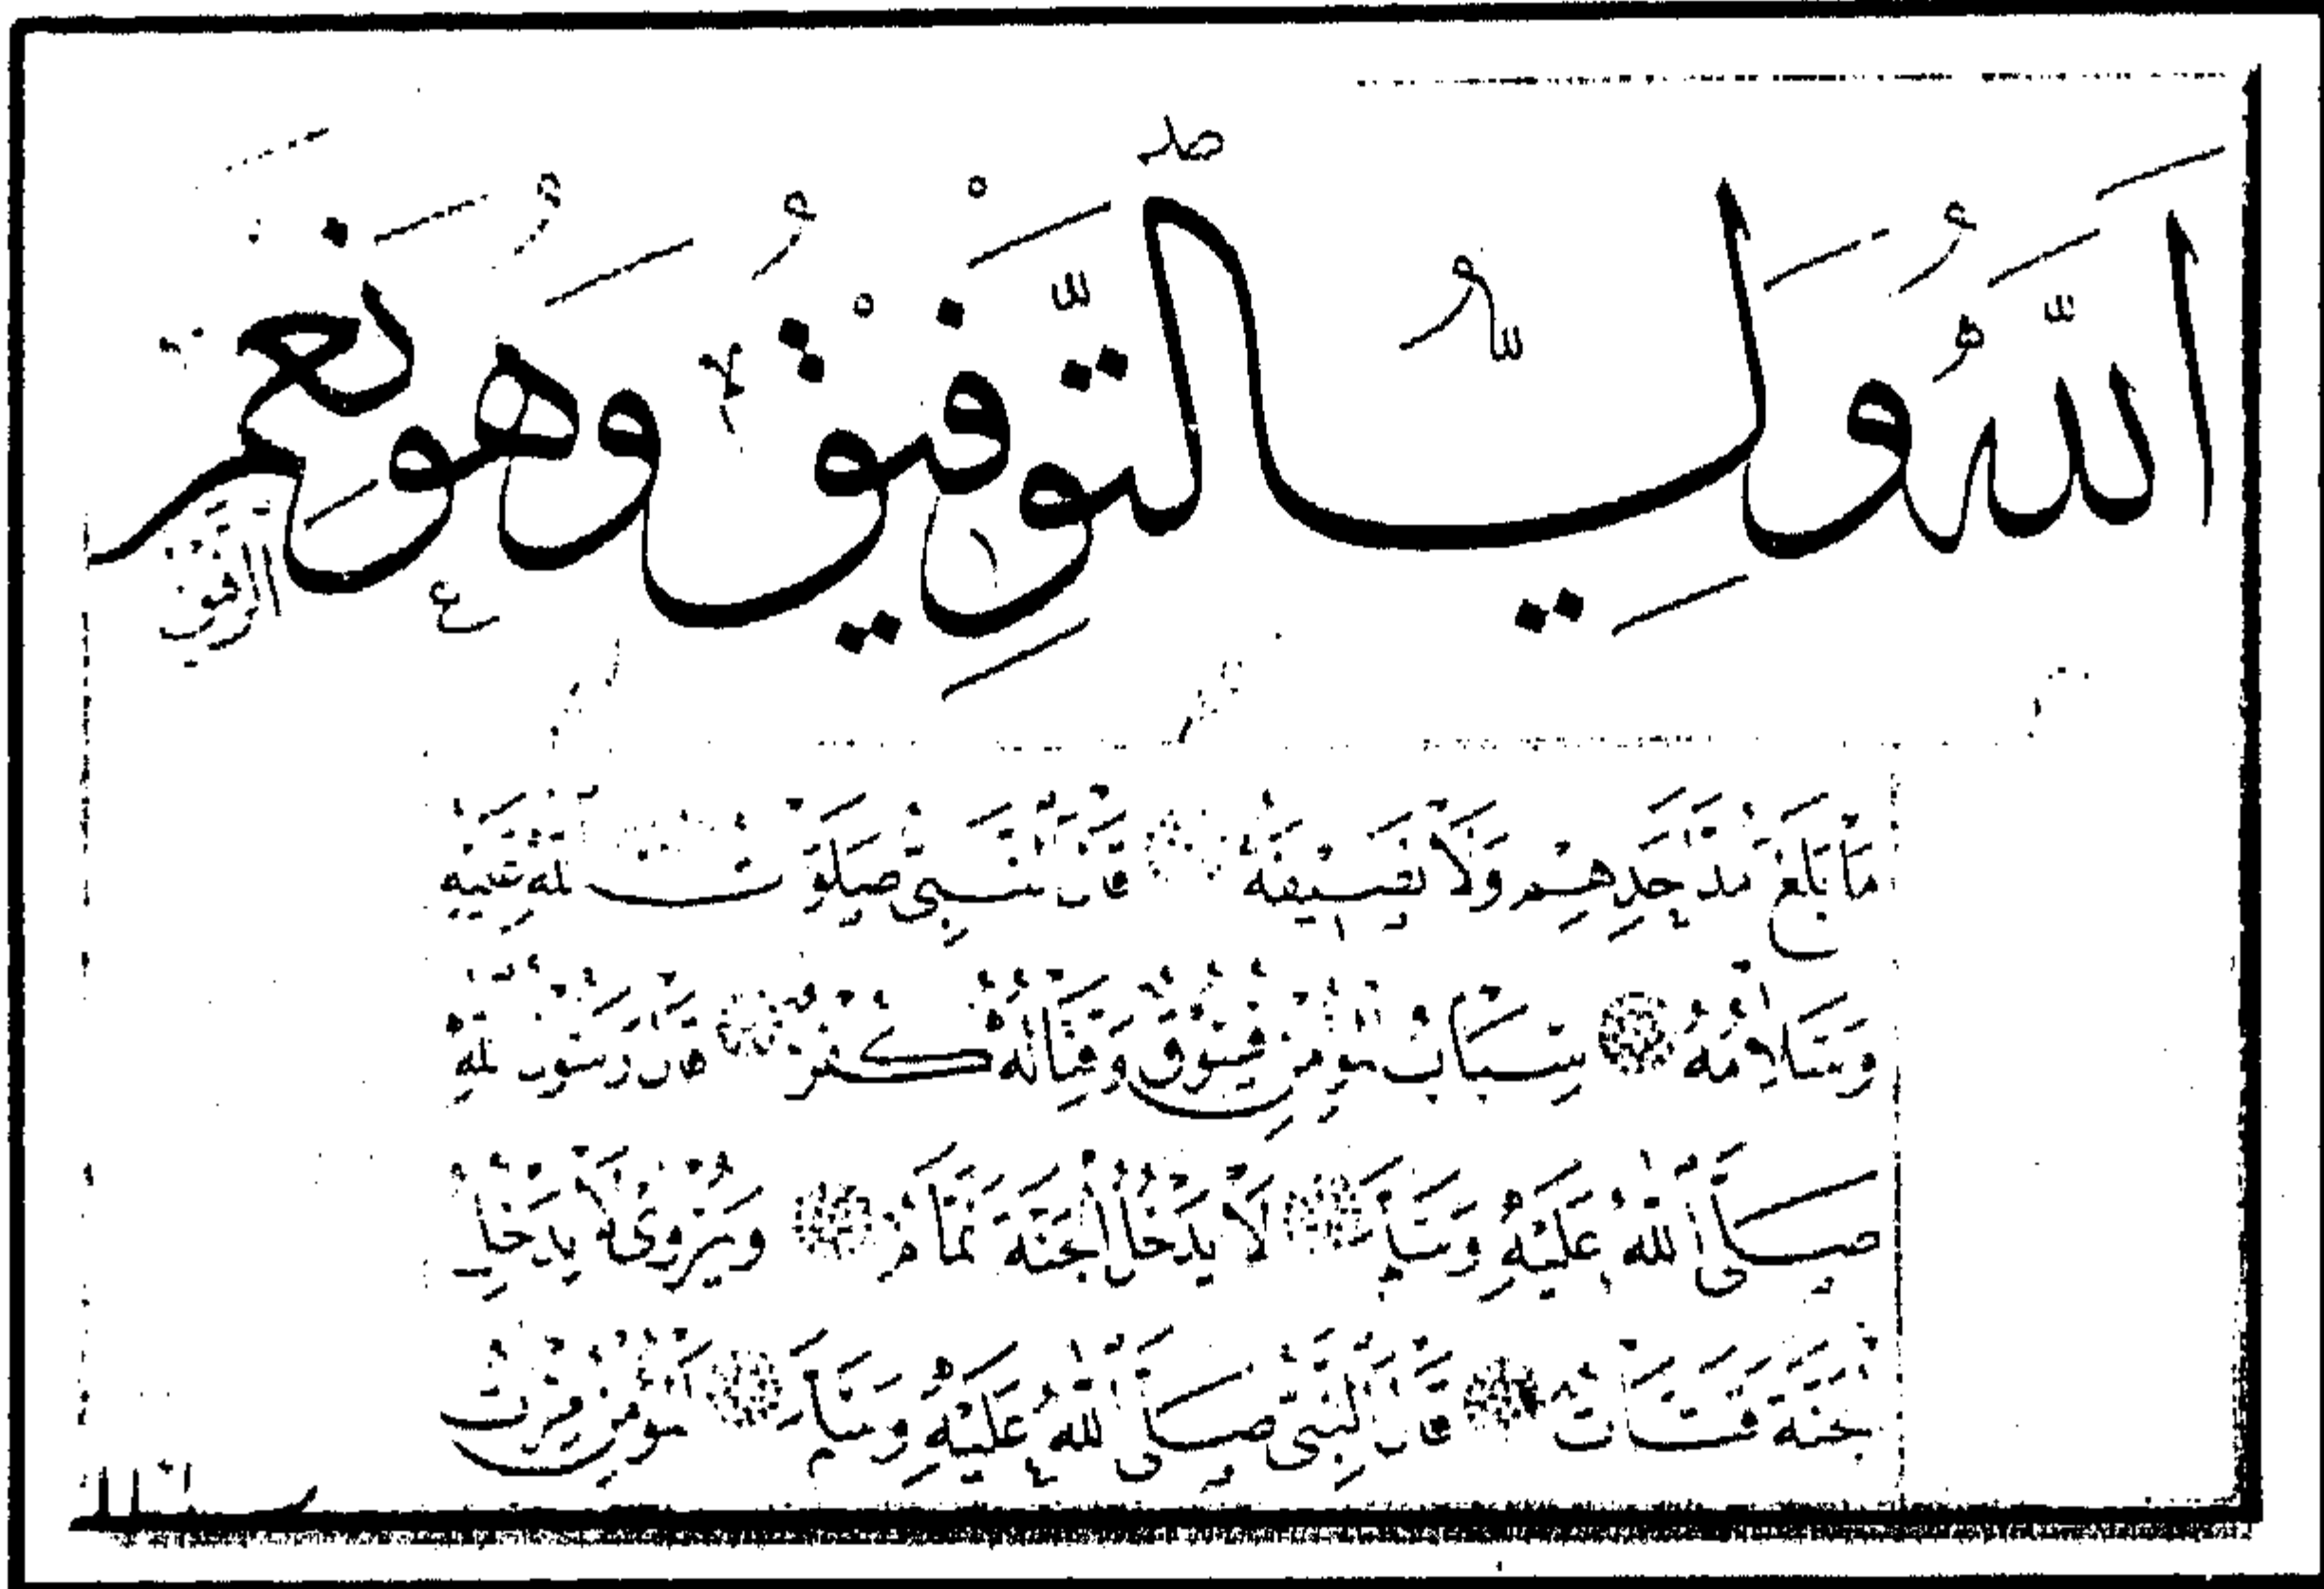 اَللّٰهُ وَلِيُّ التَّوْفِيقُ وَهُوَ نِعْمَ
الرَّفِيقُ
مَا بَلَغَ مُدَّ أَحَدِهِمْ وَلَا نَصِيفَهُ قَالَ النَّبِيُّ صَلَوَاتُ اللّٰهِ عَلَيْهِ
وَسَلَامُهُ سِبَابُ الْمُؤْمِنِ فُسُوقٌ وَقِتَالُهُ كُفْرٌ قَالَ رَسُولُ اللّٰهِ
صَلَّى اللّٰهُ عَلَيْهِ وَسَلَّمَ لَا يَدْخُلُ الْجَنَّةَ نَمَّامٌ وَيُرْوَى لَا يَدْخُلُ
الْجَنَّةَ قَتَّاتٌ قَالَ النَّبِيُّ صَلَّى اللّٰهُ عَلَيْهِ وَسَلَّمَ الْمُؤْمِنُ